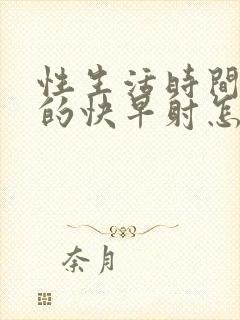 性生活時間
的快早射怎
奈月